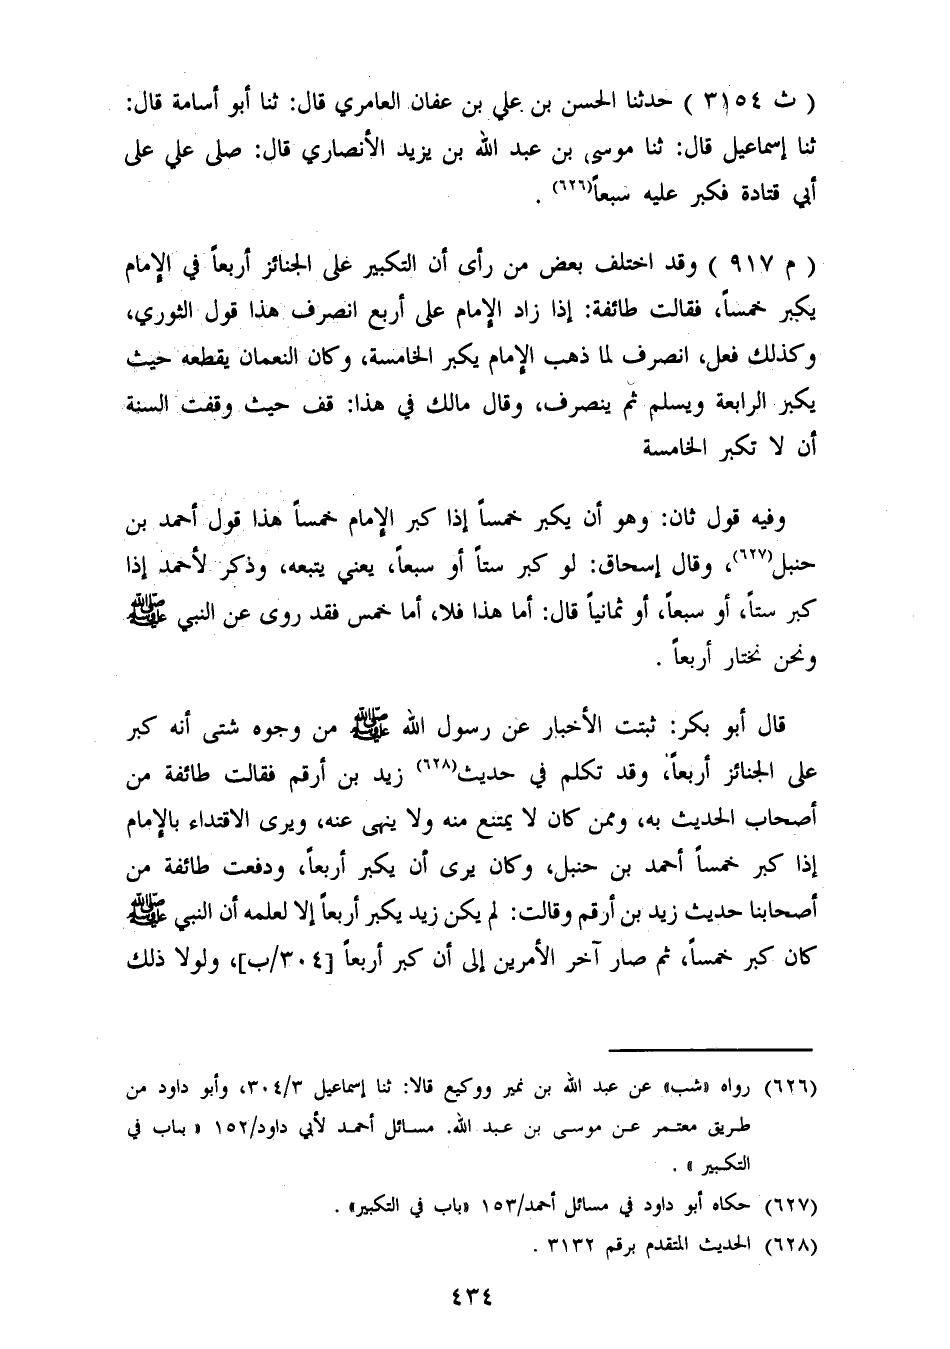 ( ث ٣١٥٤ ) حدثنا الحسن بن علي بن عفان العامري قال: ثنا أبو أسامة قال:
ثنا إسماعيل قال: ثنا موسى بن عبد الله بن يزيد الأنصاري قال: صلى علي على
أبي قتادة فكبر عليه سبعاً(٦٢٦) .
( م ٩١٧ ) وقد اختلف بعض من رأى أن التكبير على الجنائز أربعاً في الإمام
يكبر خمساً، فقالت طائفة: إذا زاد الإمام على أربع انصرف هذا قول الثوري،
وكذلك فعل، انصرف لما ذهب الإمام يكبر الخامسة، وكان النعمان يقطعه حيث
يكبر الرابعة ويسلم ثم ينصرف، وقال مالك في هذا: قف حيث وقفت السنة
أن لا تكبر الخامسة
وفيه قول ثان: وهو أن يكبر خمساً إذا كبر الإمام خمساً هذا قول أحمد بن
حنبل(٦٢٧)، وقال إسحاق: لو كبر ستاً أو سبعاً، يعني يتبعه، وذكر لأحمد إذا
كبر ستاً، أو سبعاً، أو ثمانياً قال: أما هذا فلا، أما خمس فقد روى عن النبي ﷺ
ونحن نختار أربعاً .
قال أبو بكر: ثبتت الأخبار عن رسول الله ﷺ من وجوه شتى أنه كبر
على الجنائز أربعاً، وقد تكلم في حديث(٦٢٨) زيد بن أرقم فقالت طائفة من
أصحاب الحديث به، وممن كان لا يمتنع منه ولا ينهى عنه، ويرى الاقتداء بالإمام
إذا كبر خمساً أحمد بن حنبل، وكان يرى أن يكبر أربعاً، ودفعت طائفة من
أصحابنا حديث زيد بن أرقم وقالت: لم يكن زيد يكبر أربعاً إلا لعلمه أن النبي ﷺ
كان كبر خمساً، ثم صار آخر الأمرين إلى أن كبر أربعاً [٣٠٤/ب]، ولولا ذلك
(٦٢٦) رواه «شب» عن عبد الله بن نمير ووكيع قالا: ثنا إسماعيل ٣٠٤/٣، وأبو داود من
طريق معتمر عن موسى بن عبد الله. مسائل أحمد لأبي داود/١٥٢ « باب في
التكبير » .
(٦٢٧) حكاه أبو داود في مسائل أحمد/١٥٣ «باب في التكبير» .
(٦٢٨) الحديث المتقدم برقم ٣١٣٢ .
٤٣٤